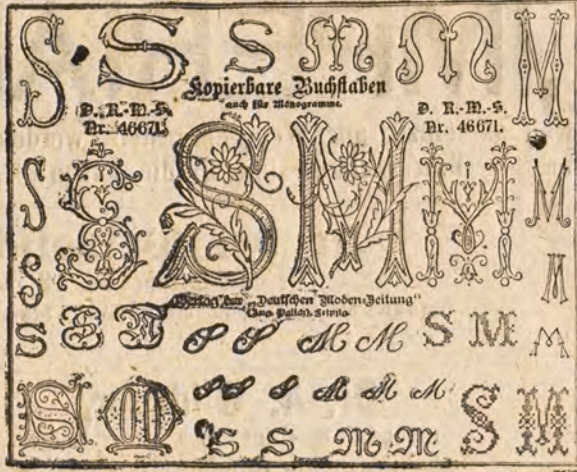 S S S M M M
Kopierbare Buchstaben
auch für Monogramme.
D. R.-M.-S.
Nr. 46671.
D. R.-M.-S.
Nr. 46671.
S S S M M M
S M
Verlag der „Deutschen Moden-Zeitung“
(Aug. Polich), Leipzig.
S S M S S M M S M M
S S S M M M
S M S S M M S M